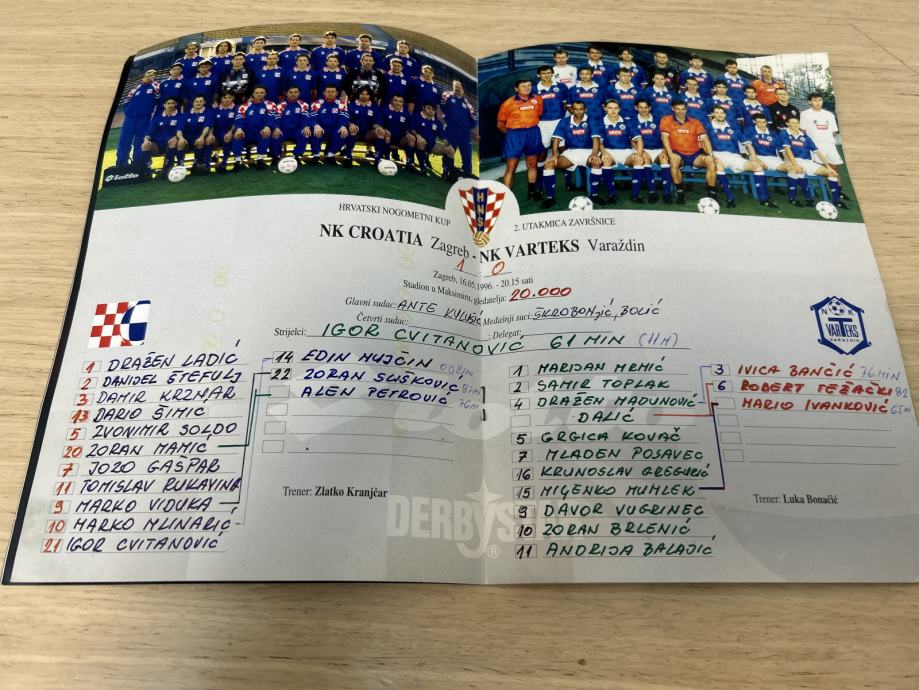 lotto
HNS
HRVATSKI NOGOMETNI KUP
2. UTAKMICA ZAVRŠNICE
NK CROATIA Zagreb - NK VARTEKS Varaždin
1 0
Zagreb, 16.05.1996. - 20.15 sati
Stadion u Maksimiru, gledatelja: 20.000
Glavni sudac: ANTE KULUŠIĆ Međašnji suci: ŠKROBONJIĆ, BOLIĆ
Četvrti sudac: ; Delegat:
Strijelci: IGOR CVITANOVIĆ 61 MIN (HM)
1 DRAŽEN LADIĆ
2 DANIJEL ŠTEFULJ
3 DAMIR KRZNAR
13 DARIO ŠIMIĆ
5 ZVONIMIR SOLDO
20 ZORAN MAMIĆ
7 JOZO GAŠPAR
11 TOMISLAV RUKAVINA
9 MARKO VIDUKA
10 MARKO MLINARIĆ
21 IGOR CVITANOVIĆ
14 EDIN MUJČIN
22 ZORAN SLIŠKOVIĆ
ALEN PETROVIĆ
Trener: Zlatko Kranjčar
1 MARIJAN MRMIĆ
2 SAMIR TOPLAK
4 DRAŽEN MADUNOVIĆ
DALIĆ
5 GRGICA KOVAČ
7 MLADEN POSAVEC
16 KRUNOSLAV GREGURIĆ
15 MIĻENKO MUMLEK
9 DAVOR VUGRINEC
10 ZORAN BRLENIĆ
11 ANDRIJA BALAJIĆ
NK
VARTEKS
VARAŽDIN
3 IVICA BANČIĆ 76 MIN
6 ROBERT TEŽAČKI 82
MARIO IVANKOVIĆ 65 MI
Trener: Luka Bonačić
DERBYSTAR